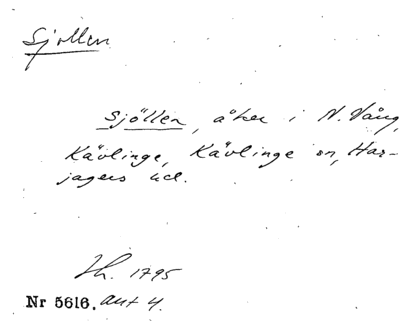 Sjollen
Sjöllen, åker i N. Vång,
Kävlinge, Kävlinge sn, Har-
jagers hd.
Lh. 1795
Nr 5616. ant 4.